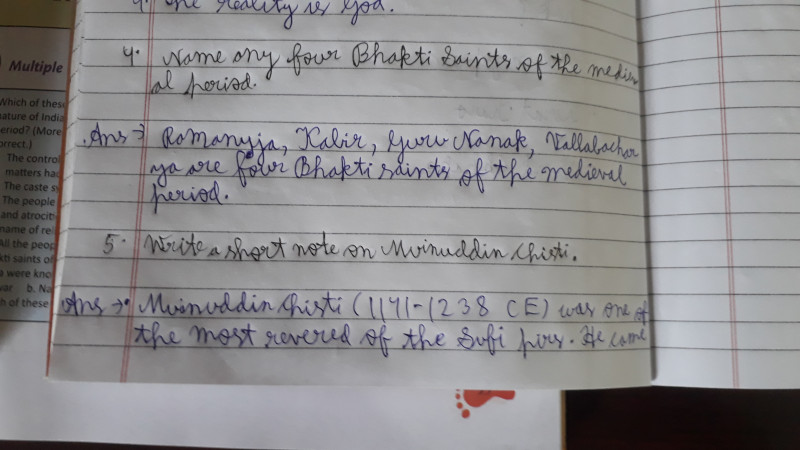 one reality is God.
4. Name any four Bhakti Saints of the mediev
al period.
Ans → Ramanyja, Kabir, Guru Nanak, Vallabachar
ya are four Bhakti saints of the medieval
period.
5. Write a short note on Moinuddin Chisti.
Ans → Moinuddin Chisti (1141-1238 CE) was one of
the most revered of the Sufi pirs. He came
Multiple
Which of these
nature of India
period? (More
correct.)
The control
matters ha
The caste s
The people
and atrociti
name of rel
All the peop
kti saints of
a were kno
war b. Na
h of these